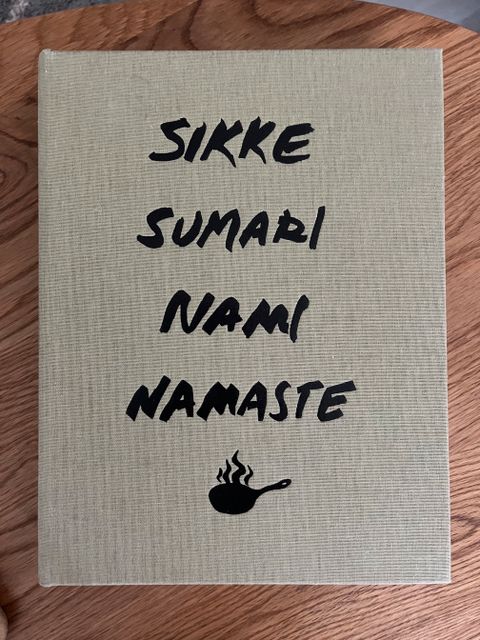 SIKKE
SUMARI
NAMI
NAMASTE